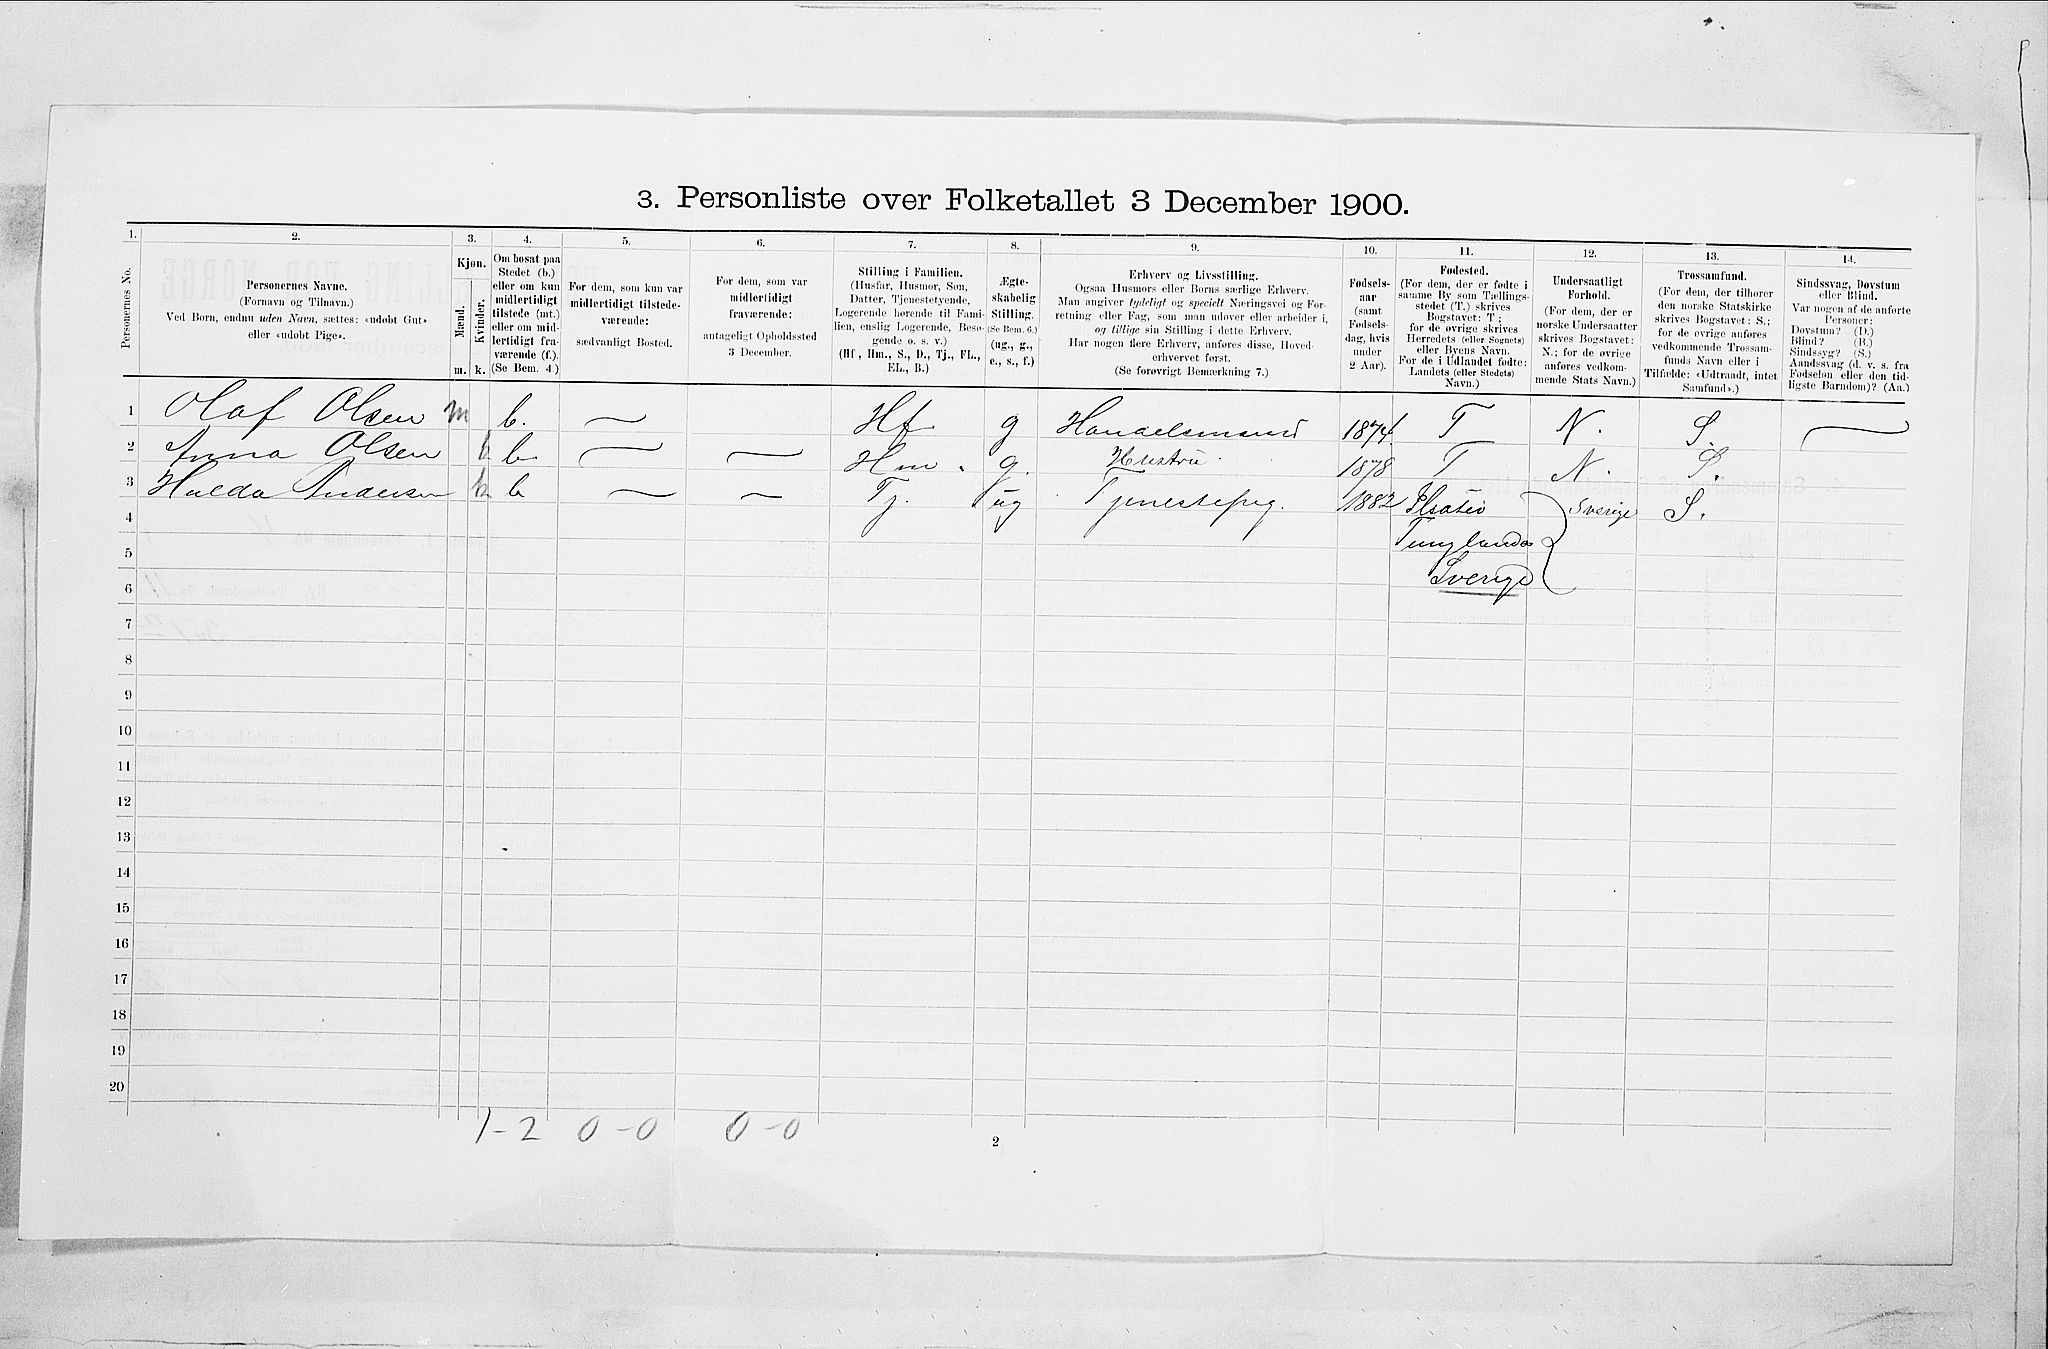 3. Personliste over Folketallet 3 December 1900.
1. 2. 3. 4. 5. 6. 7. 8. 9. 10. 11. 12. 13. 14.
Personernes No.
Personernes Navne.
(Fornavn og Tilnavn.)
Ved Børn, endnu uden Navn, sættes: «udøbt Gut»
eller «udøbt Pige».
Kjøn.
Mænd.
Kvinder.
m. k.
Om bosat paa
Stedet (b.)
eller om kun
midlertidigt
tilstede (mt.)
eller om mid-
lertidigt fra-
værende (f.).
(Se Bem. 4.)
For dem, som kun var
midlertidigt tilstede-
værende:
sædvanligt Bosted.
For dem, som var
midlertidigt
fraværende:
antageligt Opholdssted
3 December.
Stilling i Familien.
(Husfar, Husmor, Søn,
Datter, Tjenestetyende,
Logerende hørende til Fami-
lien, enslig Logerende, Besø-
gende o. s. v.)
(Hf., Hm., S., D., Tj., FL.,
EL., B.)
Ægte-
skabelig
Stilling.
(Se Bem. 6.)
(ug., g.,
e., s., f.)
Erhverv og Livsstilling.
Ogsaa Husmors eller Børns særlige Erhverv.
Man angiver tydeligt og specielt Næringsvei og For-
retning eller Fag, som man udøver eller arbeider i,
og tillige sin Stilling i dette Erhverv.
Har nogen flere Erhverv, anføres disse, Hoved-
erhvervet først.
(Se forøvrigt Bemærkning 7.)
Fødsels-
aar
(samt
Fødsels-
dag, hvis
under
2 Aar).
Fødested.
(For dem, der er fødte i
samme By som Tællings-
stedet (T.) skrives
Bogstavet: T.;
for de øvrige skrives
Herredets (eller Sognets)
eller Byens Navn.
For de i Udlandet fødte:
Landets (eller Stedets)
Navn.)
Undersaatligt
Forhold.
(For dem, der er
norske Undersaatter
skrives Bogstavet:
N.; for de øvrige
anføres vedkom-
mende Stats Navn.)
Trossamfund.
(For dem, der tilhører
den norske Statskirke
skrives Bogstavet: S.;
for de øvrige anføres
vedkommende Trossam-
funds Navn eller i
Tilfælde: «Udtraadt, intet
Samfund».)
Sindssvag, Døvstum
eller Blind.
Var nogen af de anførte
Personer:
Døvstum? (D.)
Blind? (B.)
Sindssyg? (S.)
Aandssvag (d. v. s. fra
Fødselen eller den tid-
ligste Barndom)? (Aa.)
1 Olaf Olsen m b. — Hf. g Handelsmand 1874. T N. S. —
2 Anna Olsen k b. — — Hm. g. Hustru. 1878 T N. S.
3 Hulda Andersen k b — — Tj. ug Tjenestepig. 1882 Sverige S.
4
5
6 Sverige
7
8
9
10
11
12
13
14
15
16
17
18
19
20
1-2 0-0 0-0
2